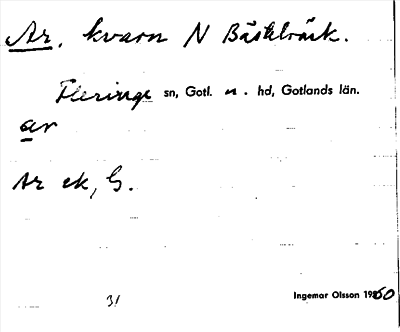 Ar, kvarn N Bästeträsk.
Fleringe sn, Gotl. n. hd, Gotlands län.
ar
Ar ek, G.
31
Ingemar Olsson 1960